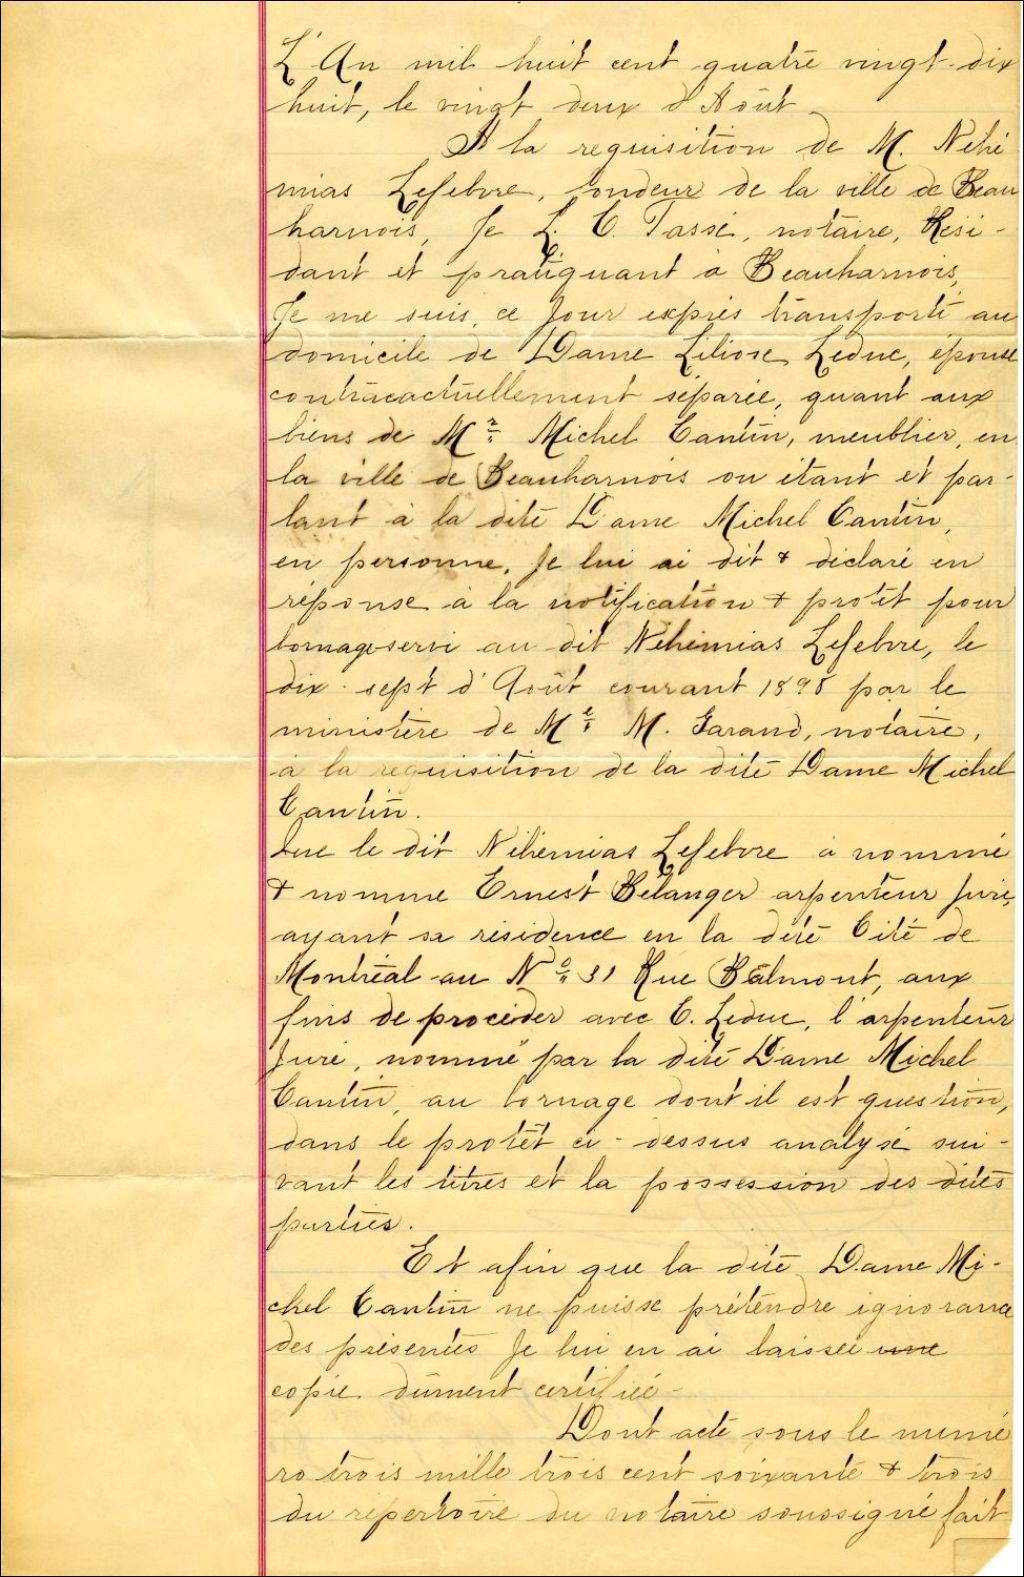 L'An mil huit cent quatre vingt-dix
huit, le vingt deux d'Août
A la requisition de M. Néhé
mias Lefebvre, fondeur de la ville de Beau
harnois, Je L. C. Tassé, notaire, Rési-
dant et pratiquant à Beauharnois,
Je me suis, ce Jour exprès transporté au
domicile de Dame Liliose Leduc, épouse
contracactuellement séparée, quant aux
biens de Mr Michel Cantin, meublier, en
la ville de Beauharnois ou étant et par-
lant à la dite Dame Michel Cantin,
en personne, Je lui ai dit & déclaré en
réponse à la notification & protêt pour
bornage servi au dit Néhémias Lefebvre, le
dix-sept d'Août courant 1898 par le
ministère de Me M. Garand, notaire,
à la requisition de la dite Dame Michel
Cantin.
Que le dit Néhémias Lefebvre a nommé
& nomme Ernest Bélanger arpenteur Juré,
ayant sa résidence en la dite Cité de
Montréal au No 31 Rue Balmont, aux
fins de procéder avec C. Leduc, l'arpenteur
Juré, nommé par la dite Dame Michel
Cantin, au bornage dont il est question,
dans le protêt ci-dessus analysé sui-
vant les titres et la possession des dites
parties.
Et afin que la dite Dame Mi-
chel Cantin ne puisse prétendre ignorance
des présentes Je lui en ai laissée une
copie dûment certifiée-
Dont acte sous le numé
ro trois mille trois cent soixante & trois
du répertoire du notaire soussigné fait